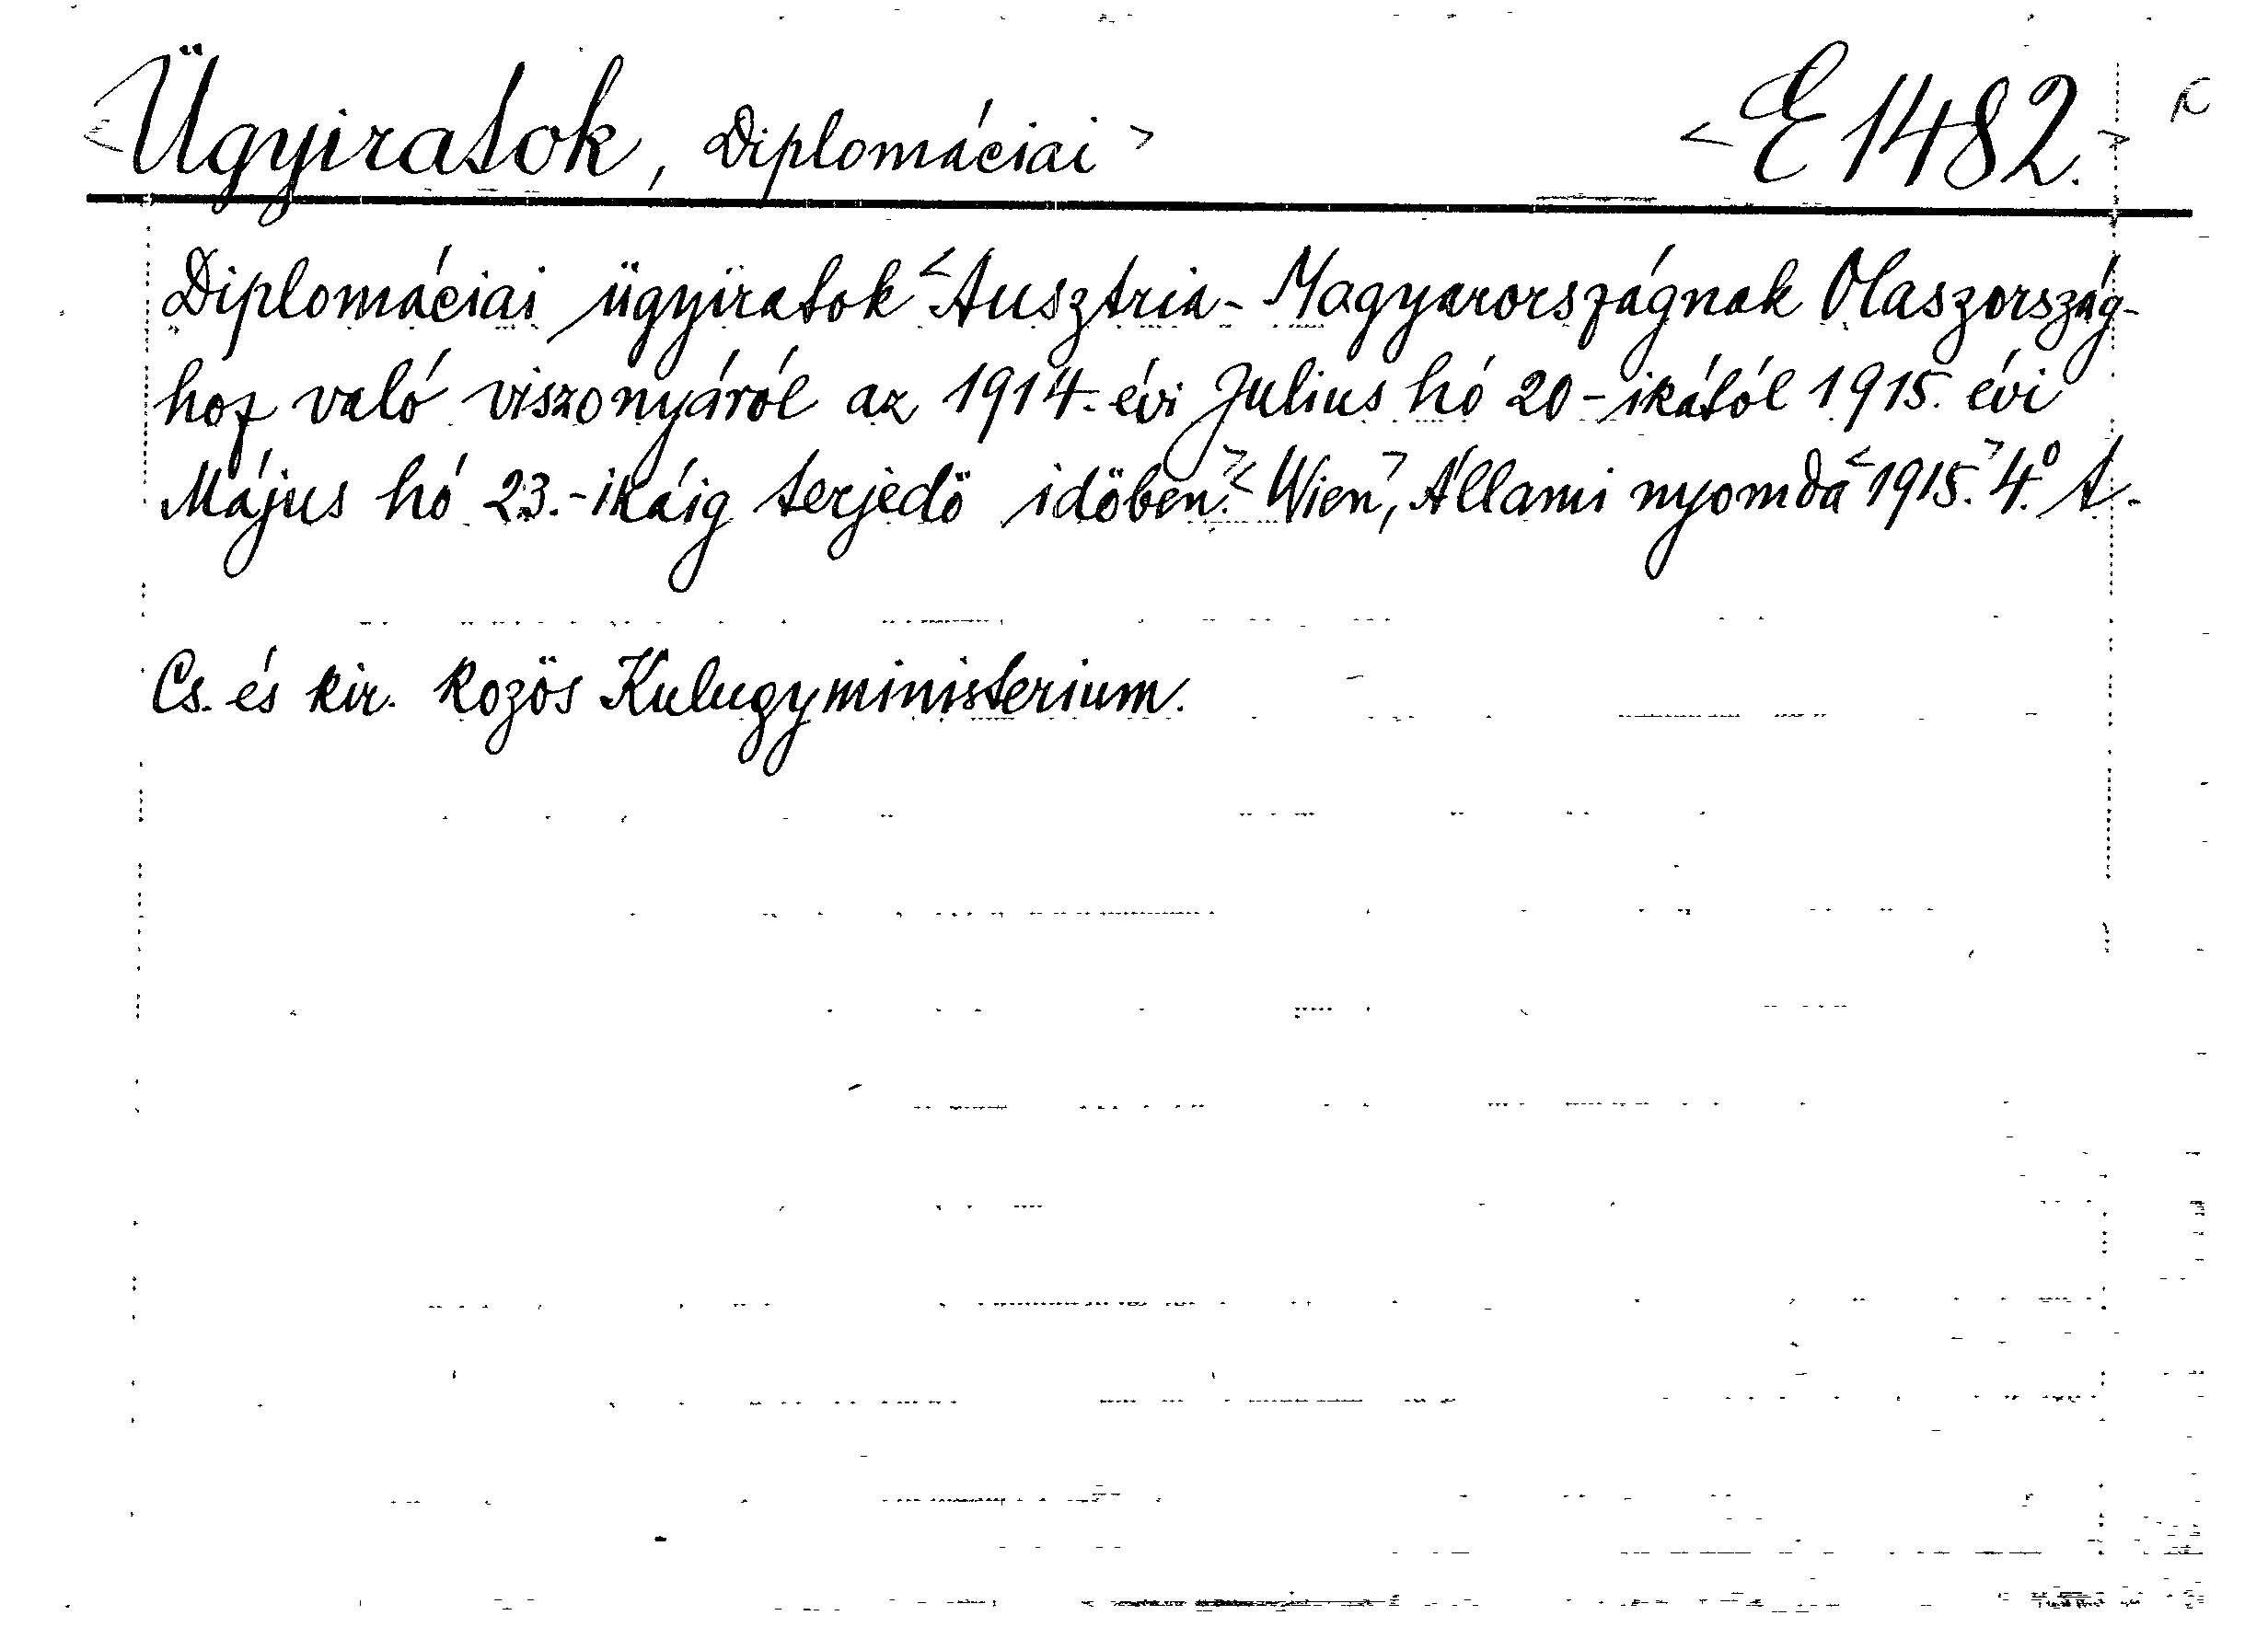 <Ügyiratok, Diplomáciai> <E 1482.>
Diplomáciai ügyiratok <Ausztria-Magyarországnak Olaszország-
hoz való viszonyáról az 1914. évi Julius hó 20-ikától 1915. évi
Május hó 23.-ikáig terjedö idöben.> <Wien>, Állami nyomda <1915.> 4.° A.
Cs. és kir. közös Kulugyministerium.